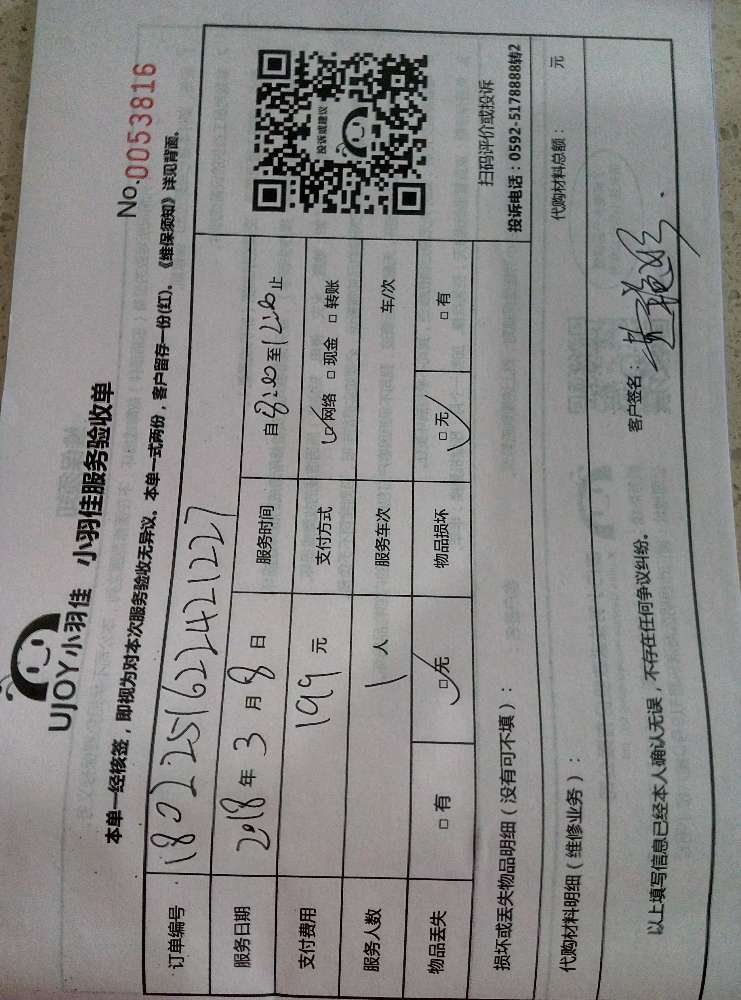 UJOY小羽佳 小羽佳服务验收单
No.0053816
本单一经核签，即视为对本次服务验收无异议。本单一式两份，客户留存一份(红)。《维保须知》详见背面。
订单编号 1802251622421227
服务日期 2018年3月8日 服务时间 自8:00至12:00止
支付费用 199元 支付方式 ☑网络 □现金 □转账
服务人数 1人 服务车次 车/次
物品丢失 □有 ☑无 物品损坏 ☑无 □有
投诉或建议
扫码评价或投诉
投诉电话：0592-5178888转2
损坏或丢失物品明细（没有可不填）：
代购材料明细（维修业务）： 代购材料总额： 元
以上填写信息已经本人确认无误，不存在任何争议纠纷。 客户签名：